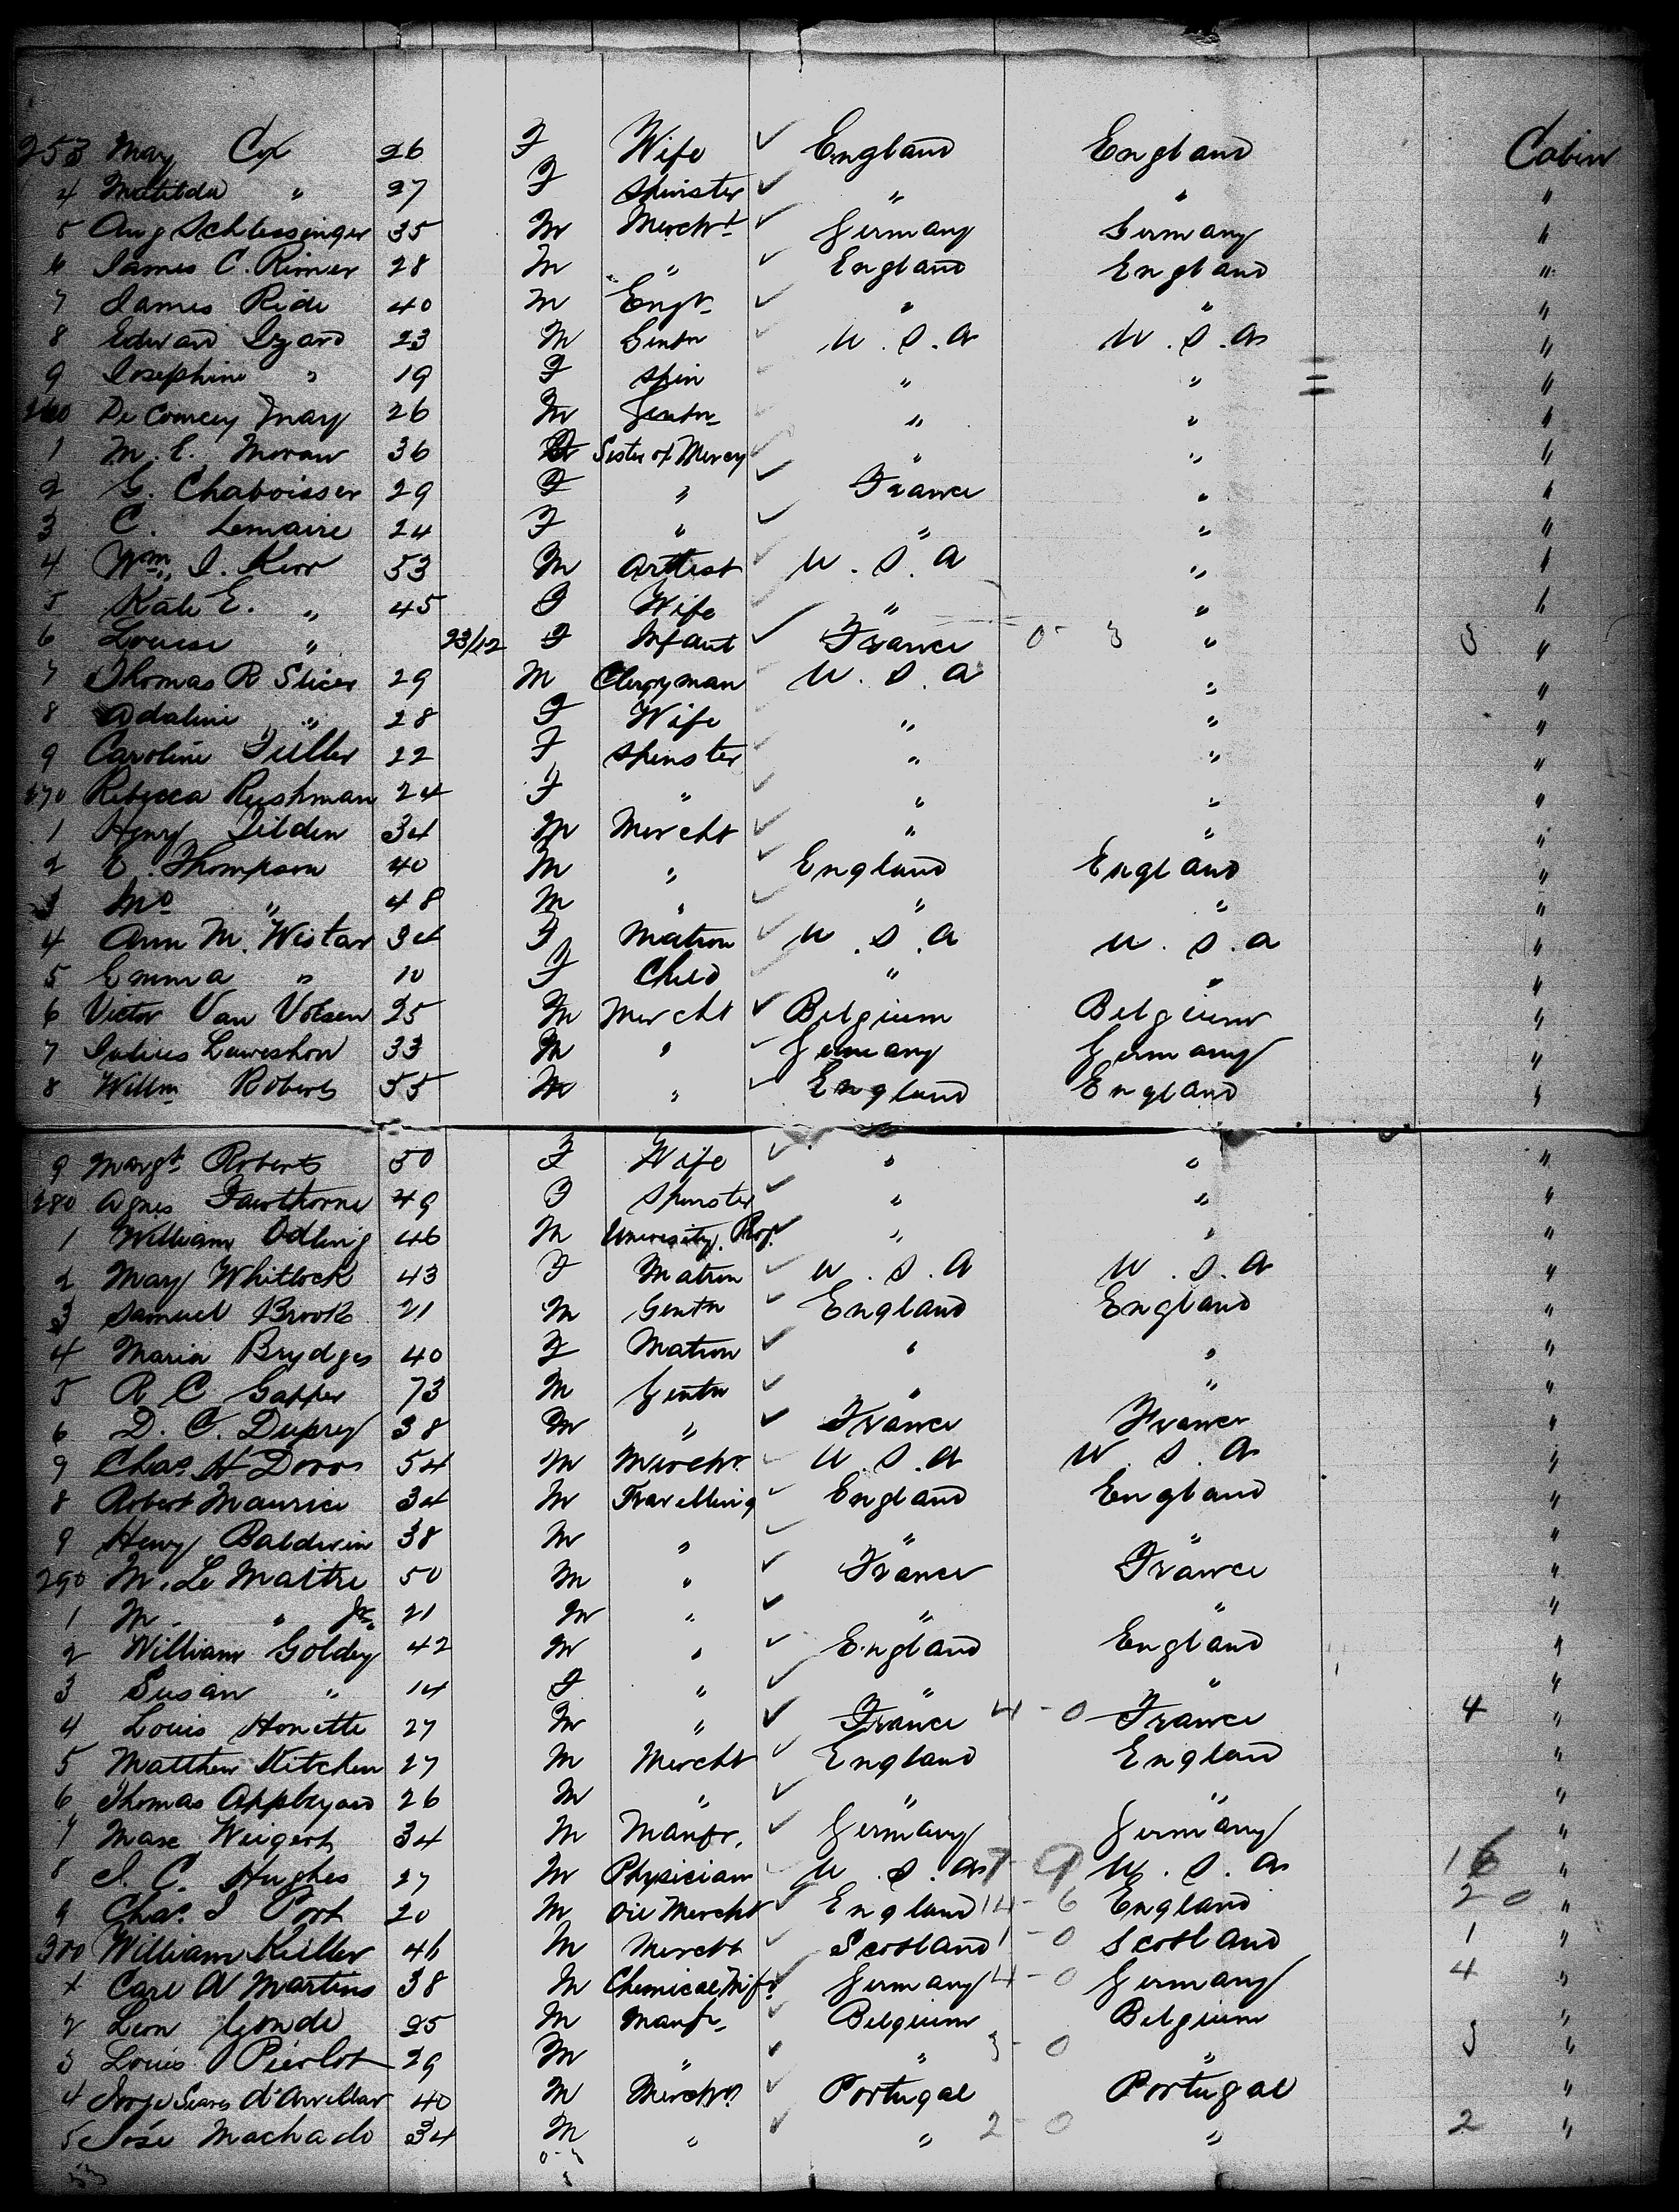 253 May Cox 26 F Wife ✓ England England Cabin
4 Matilda " 27 F Spinster ✓ " " "
5 Aug Schlessinger 35 M Mercht ✓ Germany Germany "
6 James C. Rimer 28 M " ✓ England England "
7 James Ride 40 M Engr ✓ " " "
8 Edward Izard 23 M Gentn ✓ U.S.A U.S.A "
9 Josephine " 19 F Spin ✓ " " "
260 De Courcey May 26 M Gentn " " "
1 M. E. Moran 36 F Sister of Mercy ✓ " " "
2 G. Chaboisser 29 F " ✓ France " "
3 C. Lemaire 24 F " ✓ " " "
4 Wm. J. Kerr 53 M Arttist ✓ U.S.A " "
5 Kate E. " 45 F Wife ✓ " " "
6 Louise " 23/12 F Infant ✓ France 0-3 " 3 "
7 Thomas R Slicer 29 M Clergyman ✓ U.S.A " "
8 Adaline " 28 F Wife ✓ " " "
9 Caroline Fuller 22 F Spinster ✓ " " "
270 Rebecca Rushman 24 F " ✓ " " "
1 Heny Tilden 34 M Mercht ✓ " " "
2 E. Thompson 40 M " ✓ England England "
3 " 48 M " ✓ " " "
4 Ann M. Wistar 34 F Matron ✓ U.S.A U.S.A "
5 Emma " 10 F Child ✓ " " "
6 Victor Van Volsen 25 M Mercht ✓ Belgium Belgium "
7 Julius Laweshon 33 M " ✓ Germany Germany "
8 Willm Roberts 55 M " ✓ England England "
9 Margt Roberts 50 F Wife ✓ " " "
280 Agnes Fawthorne 49 F Spinster ✓ " " "
1 William Odling 46 M University Prof. ✓ " " "
2 Mary Whitlock 43 F Matron ✓ U.S.A U.S.A "
3 Samuel Brooks 21 M Gentn ✓ England England "
4 Maria Brydges 40 F Matron ✓ " " "
5 R C Gapper 73 M Gentn ✓ " " "
6 D. C. Duprey 38 M " ✓ France France "
9 Chas H Dorr 54 M Mercht ✓ U.S.A U.S.A "
8 Robert Maurice 34 M Travelling ✓ England England "
9 Henry Baldwin 38 M " ✓ " " "
290 M. Le Maitre 50 M " ✓ France France "
1 M. " Jr. 21 M " ✓ " " "
2 William Goldey 42 M " ✓ England England "
3 Susan " 14 F " ✓ " " "
4 Louis Honette 27 M " ✓ France 4-0 France 4 "
5 Matthew Kitchen 27 M Mercht ✓ England England "
6 Thomas Appleyard 26 M " ✓ " " "
7 Max Weigert 34 M Manfr. ✓ Germany Germany "
8 J. C. Hughes 27 M Physician ✓ U.S.A 7-9 U.S.A 16 "
9 Chas. J Port 20 M Oil Mercht ✓ England 14-6 England 20 "
300 William Keiller 46 M Mercht ✓ Scotland 1-0 Scotland 1 "
1 Carl A Martins 38 M Chemical Mfr ✓ Germany 4-0 Germany 4 "
2 Leon Gonde 25 M Manfr. ✓ Belgium Belgium "
3 Louis Pierlot 29 M " ✓ " 3-0 " 3 "
4 Jorge Soares d'Avellar 40 M Mercht ✓ Portugal Portugal "
5 José Machado 34 M " ✓ " 2-0 " 2 "
53